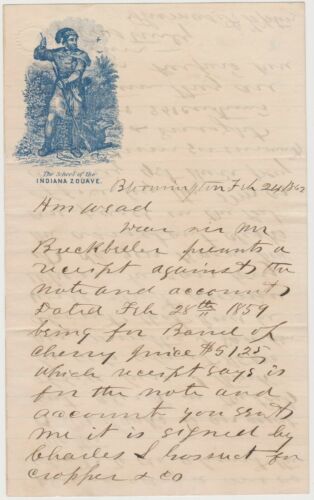 The School of the
INDIANA ZOUAVE.
Bloomington Feb 24 1862
H M Wead
Dear sir Mr
Buckbeler presents a
receipt against the
note and accounts
Dated Feb 28th 1859
being for Barrel of
Cherry Juice $51 25
which receipt says is
for the note and
account you sent
me it is signed by
Charles for
Cropper & co